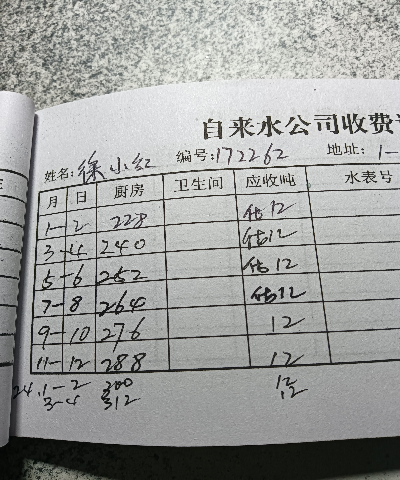 自来水公司收费
姓名: 徐小红 编号: 172262 地址: 1-
月 日 厨房 卫生间 应收吨 水表号
1-2 228 估12
3-4 240 估12
5-6 252 估12
7-8 264 估12
9-10 276 12
11-12 288 12
24.1-2 300 12
3-4 312 12